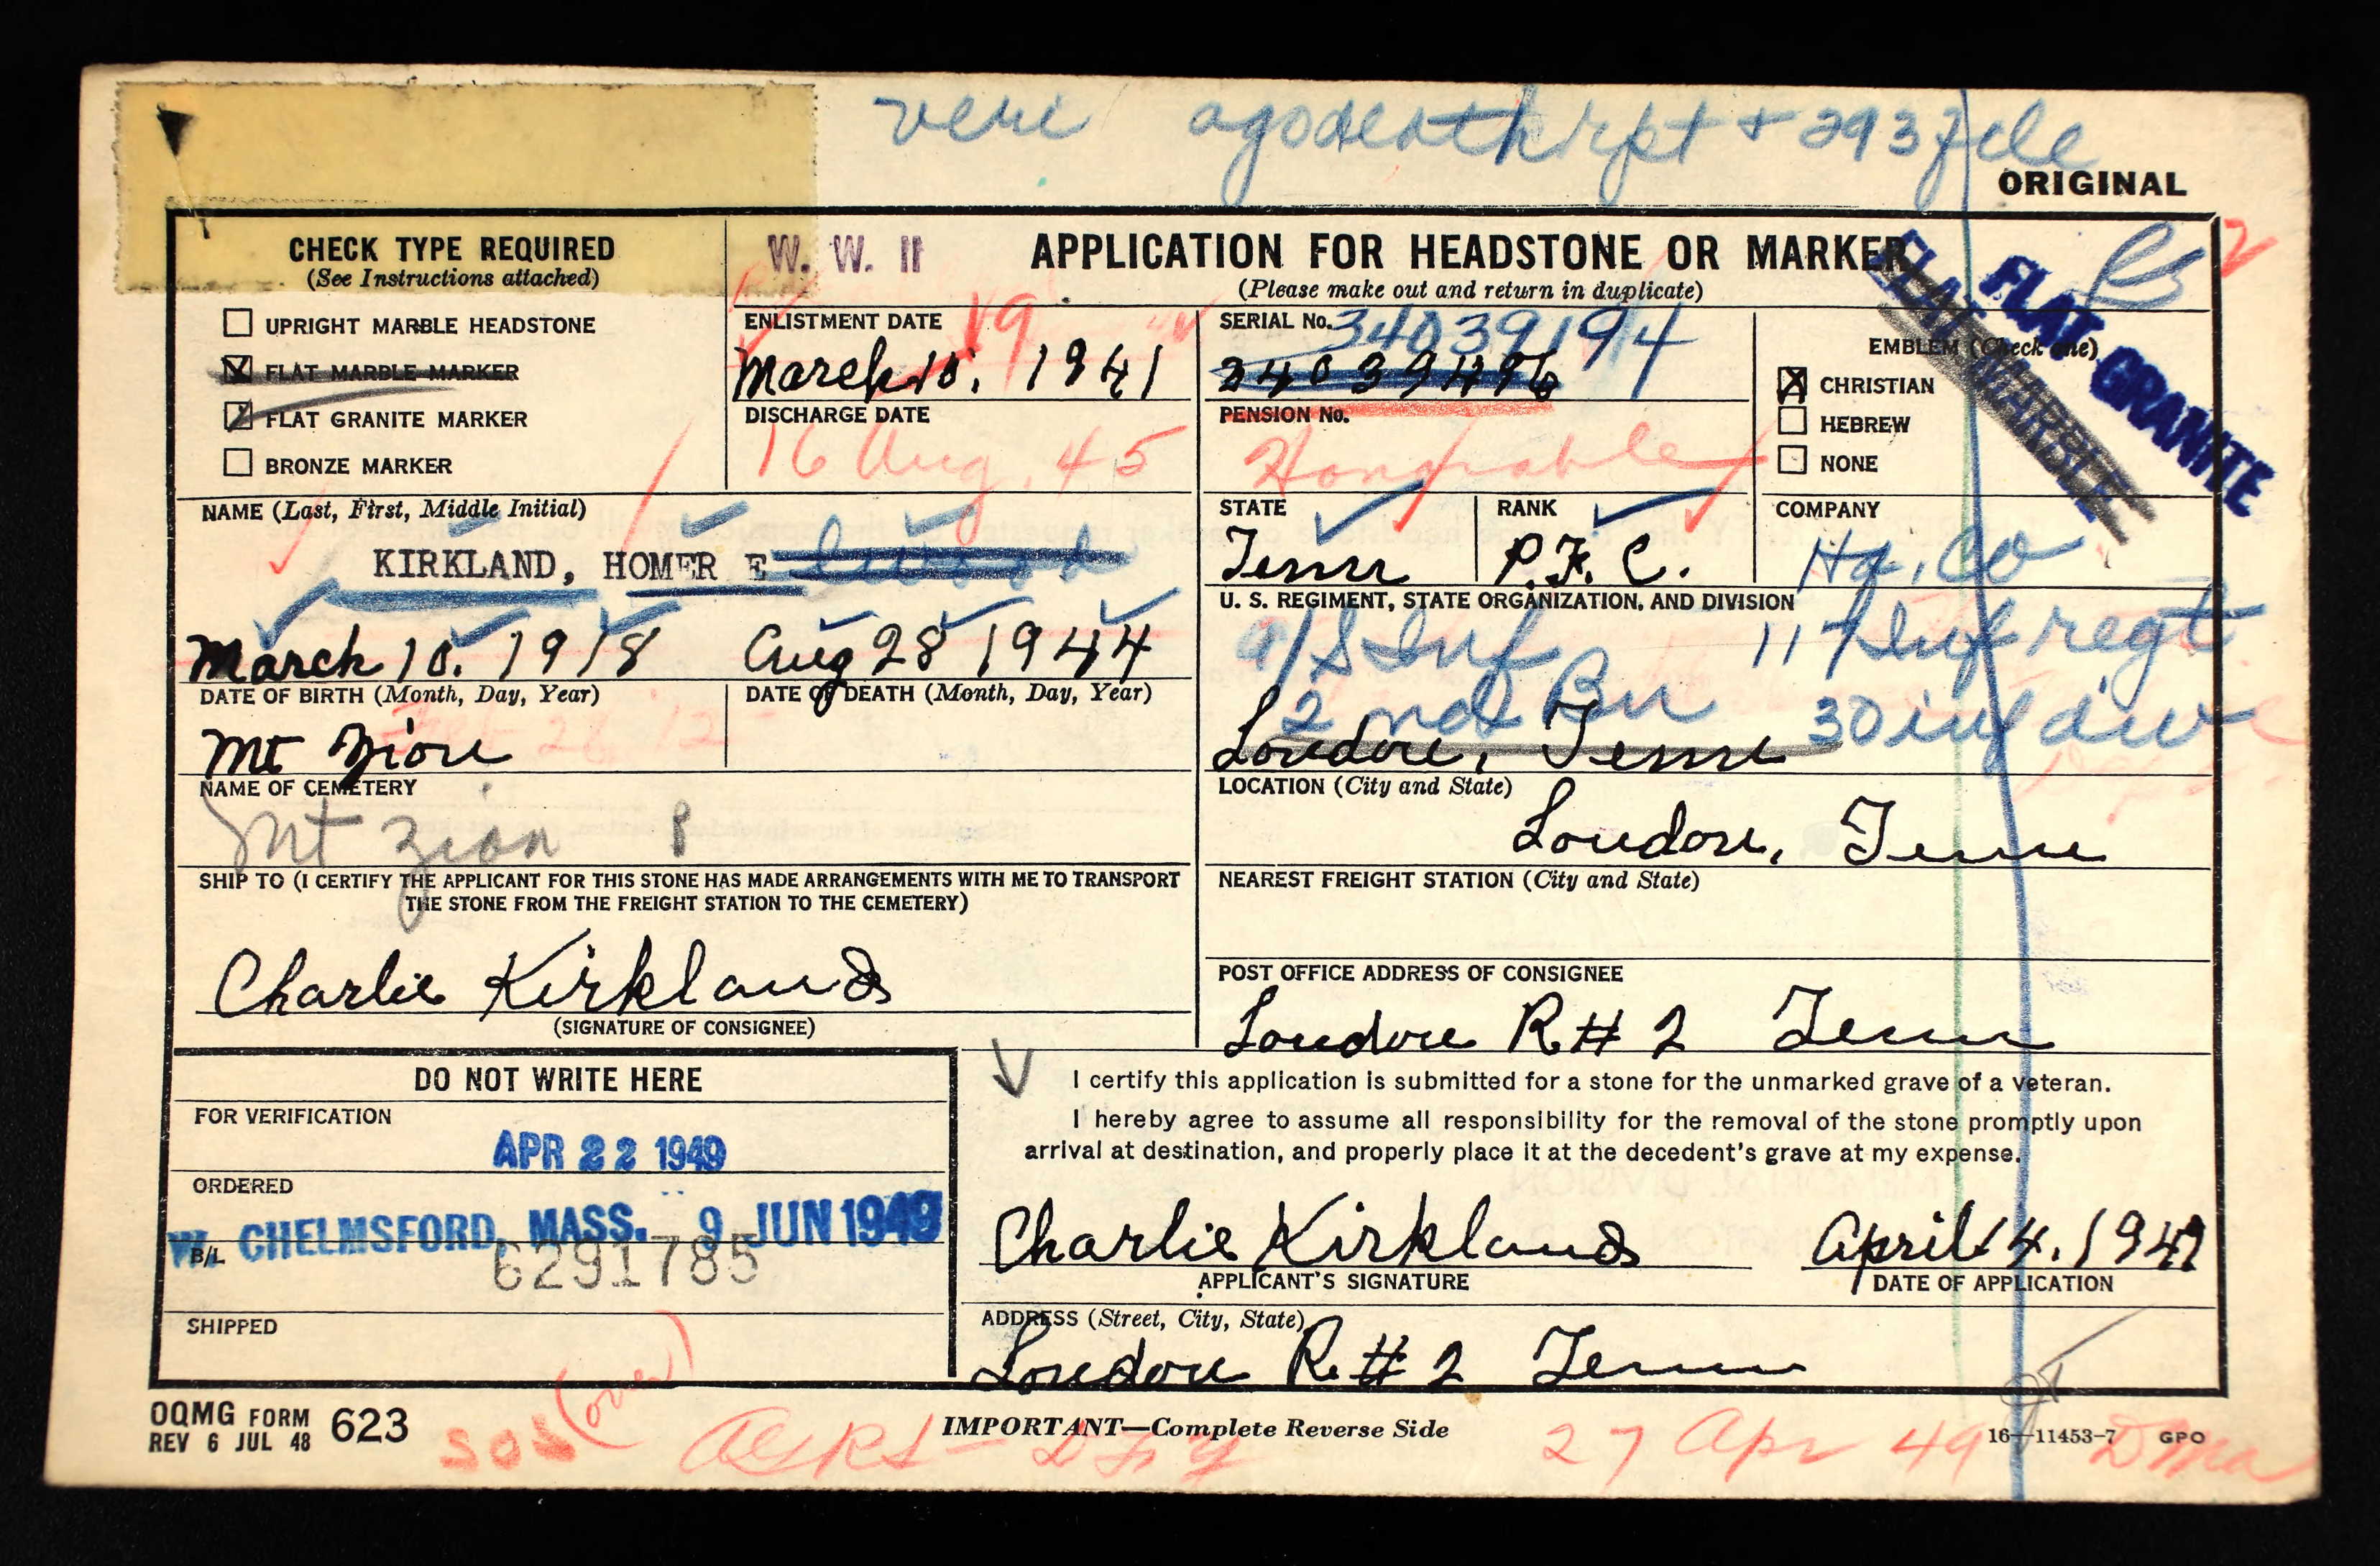 veri agodeathrpt + 293 file
ORIGINAL
CHECK TYPE REQUIRED
(See Instructions attached)
UPRIGHT MARBLE HEADSTONE
FLAT MARBLE MARKER
FLAT GRANITE MARKER
BRONZE MARKER
W. W. II
APPLICATION FOR HEADSTONE OR MARKER
(Please make out and return in duplicate)
FLAT MARBLE
FLAT GRANITE
ENLISTMENT DATE
19
March 10, 1941
DISCHARGE DATE
16 Aug. 45
SERIAL No.
34039194
34039496
PENSION No.
Honorable
EMBLEM (Check one)
CHRISTIAN
HEBREW
NONE
NAME (Last, First, Middle Initial)
KIRKLAND, HOMER E
STATE
Tenn
RANK
P.F.C.
COMPANY
Hq. Co
U. S. REGIMENT, STATE ORGANIZATION, AND DIVISION
117 Inf regt
2nd Bn 30 inf div
March 10. 1918
DATE OF BIRTH (Month, Day, Year)
Aug 28 1944
DATE OF DEATH (Month, Day, Year)
Mt Zion
NAME OF CEMETERY
Loudon, Tenn
LOCATION (City and State)
Mt Zion
Loudon, Tenn
SHIP TO (I CERTIFY THE APPLICANT FOR THIS STONE HAS MADE ARRANGEMENTS WITH ME TO TRANSPORT
THE STONE FROM THE FREIGHT STATION TO THE CEMETERY)
NEAREST FREIGHT STATION (City and State)
Charlie Kirkland
(SIGNATURE OF CONSIGNEE)
POST OFFICE ADDRESS OF CONSIGNEE
Loudon R# 2 Tenn
DO NOT WRITE HERE
FOR VERIFICATION
APR 22 1949
ORDERED
W. CHELMSFORD, MASS. 9 JUN 1949
B/L
6291785
SHIPPED
I certify this application is submitted for a stone for the unmarked grave of a veteran.
I hereby agree to assume all responsibility for the removal of the stone promptly upon
arrival at destination, and properly place it at the decedent's grave at my expense.
Charlie Kirkland
APPLICANT'S SIGNATURE
April 14. 1949
DATE OF APPLICATION
ADDRESS (Street, City, State)
Loudon R. # 2 Tenn
OQMG FORM 623
REV 6 JUL 48
SOS (over)
IMPORTANT—Complete Reverse Side
27 Apr 49
16—11453-7 GPO